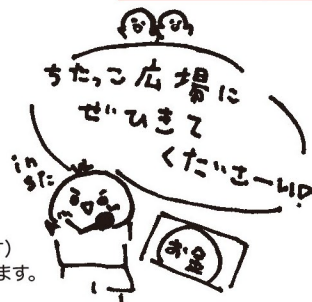 ちたっこ広場に
ぜひきて
くださーい♡
in
ちた
お金
す）
ます。